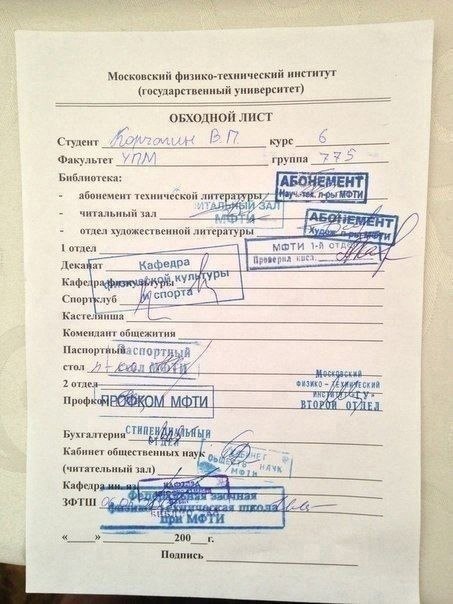 Московский физико-технический институт
(государственный университет)
ОБХОДНОЙ ЛИСТ
Студент Корчагин В.П курс 6
Факультет УПМ группа 775
Библиотека:
АБОНЕМЕНТ
- абонемент технической литературы Науч.-тех. л-ры МФТИ
ЧИТАЛЬНЫЙ ЗАЛ
- читальный зал МФТИ
АБОНЕМЕНТ
- отдел художественной литературы Худож. л-ры МФТИ
1 отдел МФТИ 1-й ОТДЕЛ
Проверил
Деканат Кафедра
Кафедра физкультуры физической культуры
Спортклуб и спорта
Кастелянша
Комендант общежития
Паспортный Паспортный
стол стол МФТИ
Московский
2 отдел физико-технический
институт
Профком ПРОФКОМ МФТИ ВТОРОЙ ОТДЕЛ
СТИПЕНДИАЛЬНЫЙ
Бухгалтерия ОТДЕЛ
Кабинет общественных наук КАБИНЕТ
(читательный зал) МФТИ НАУК
Кафедра ин. яз КАФЕДРА
ЗФТШ Федеральная заочная
физико-техническая школа
при МФТИ
«___»______200___г.
Подпись